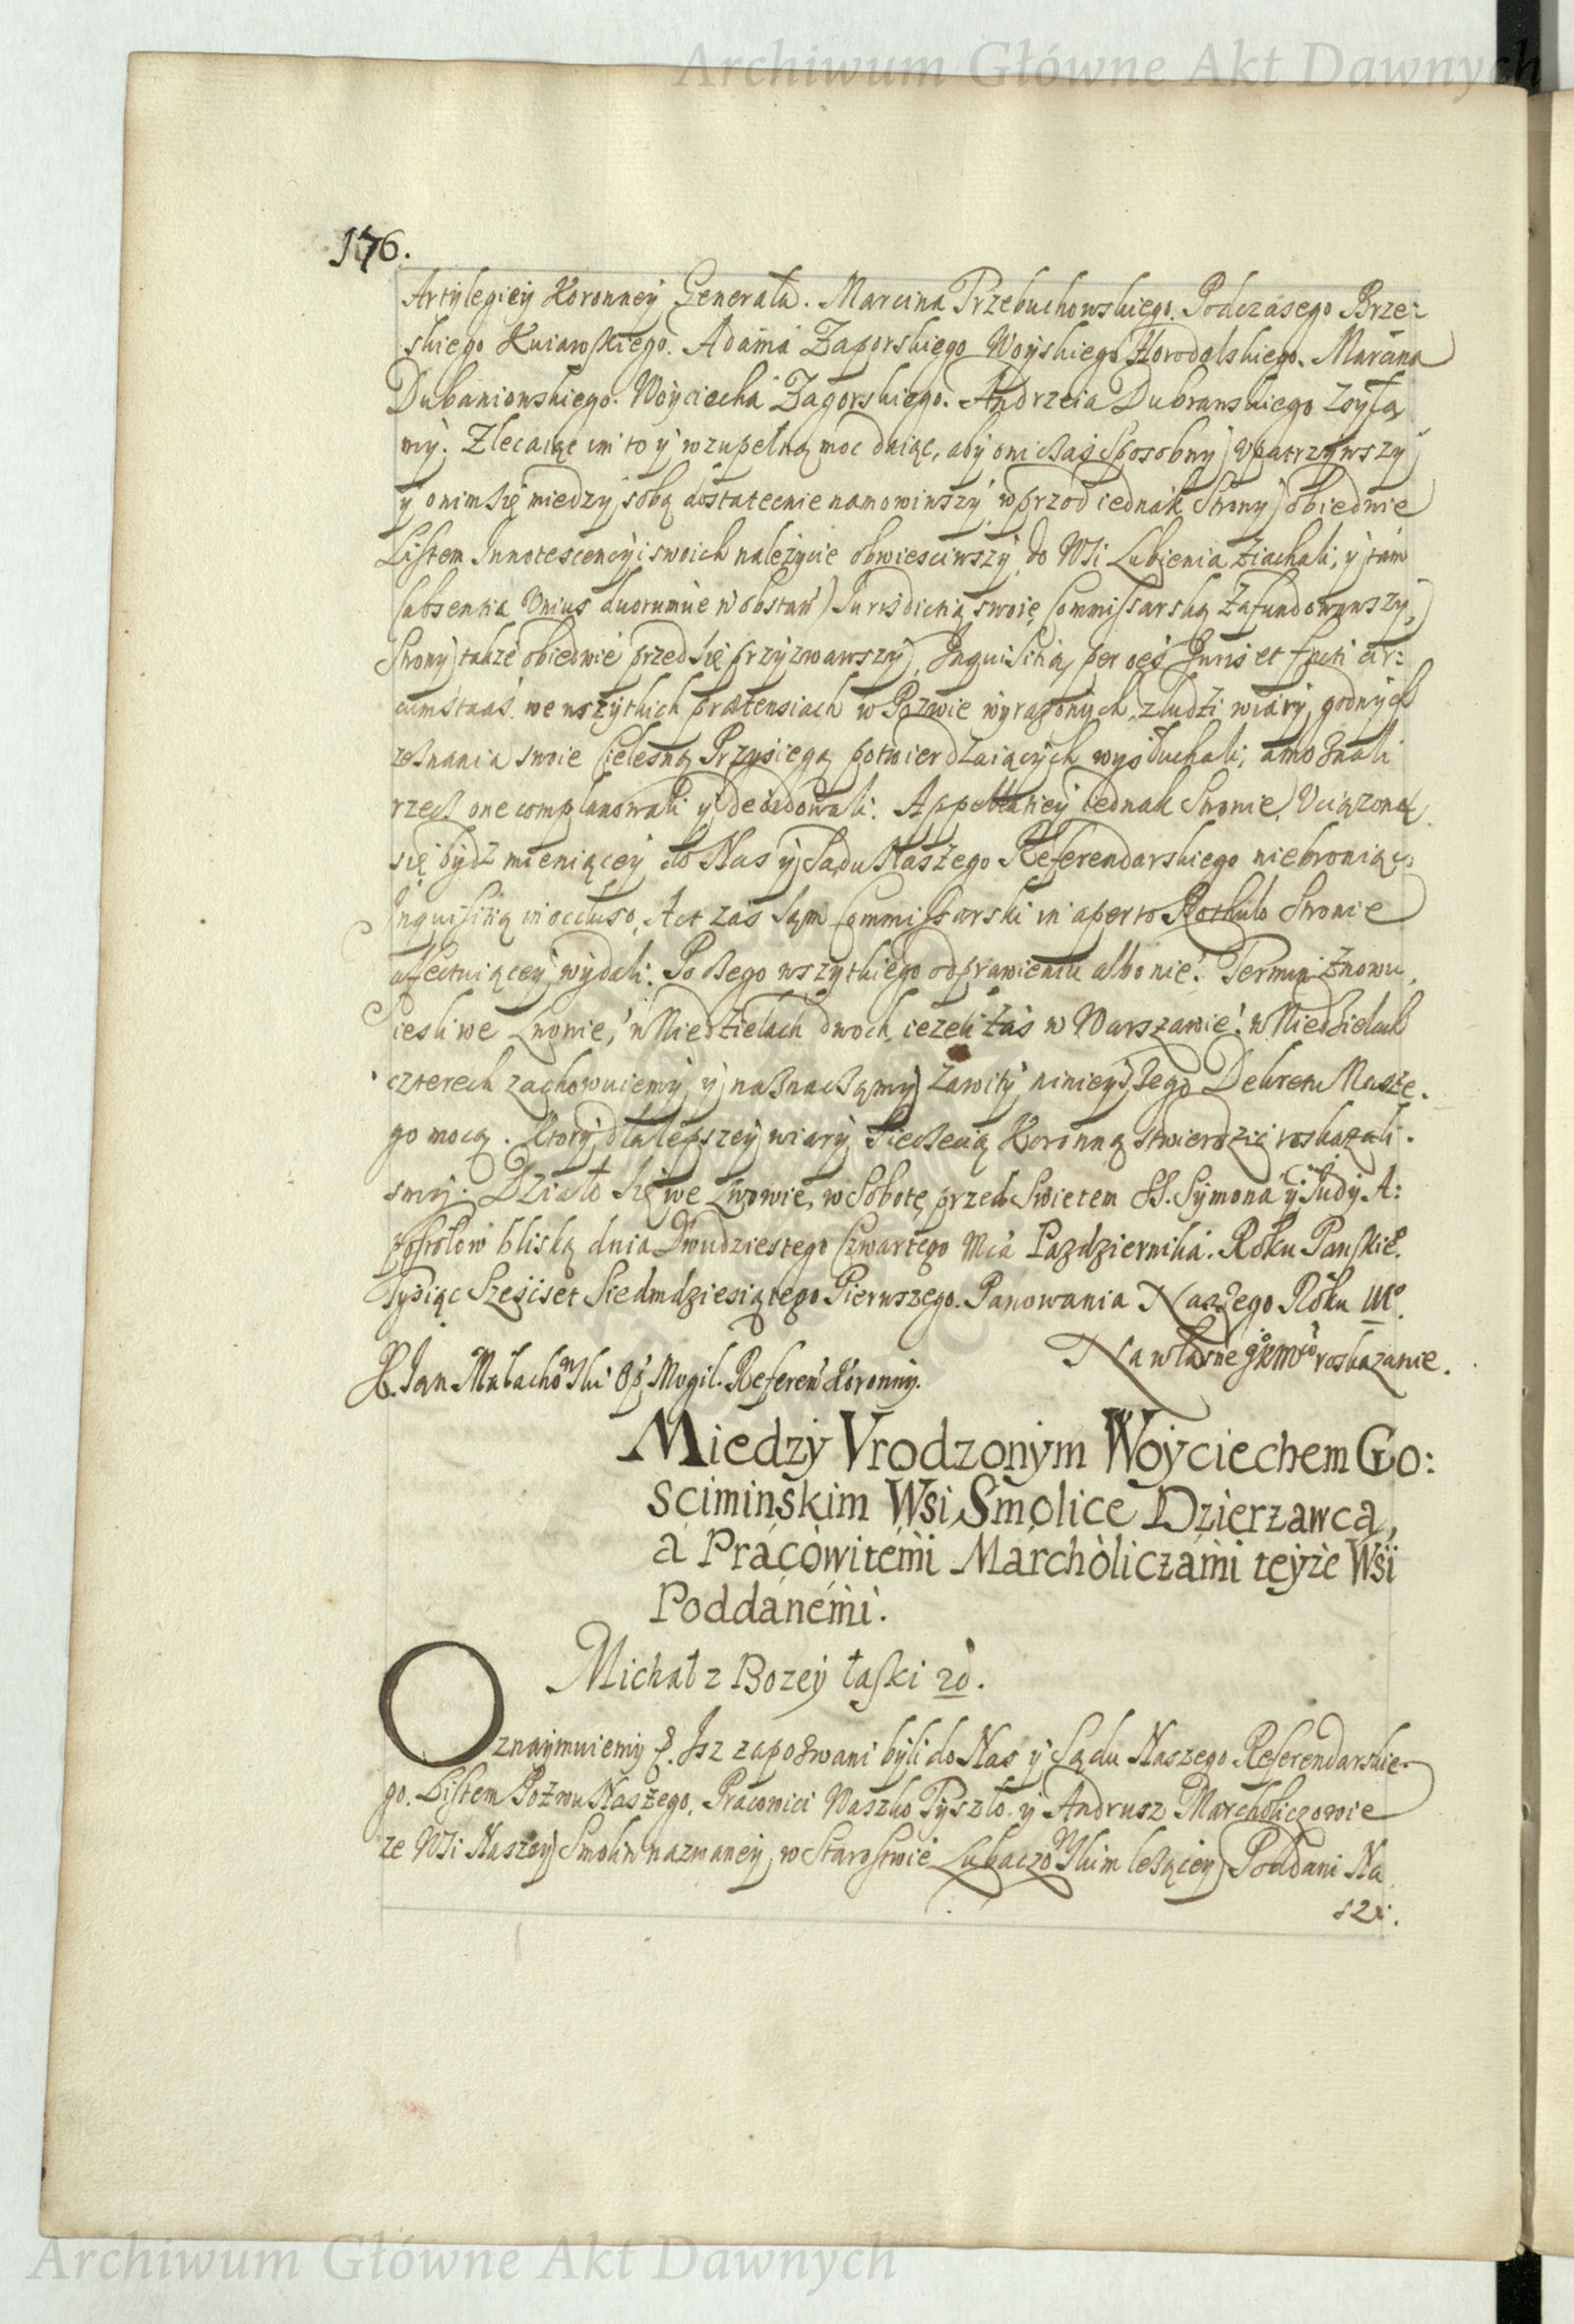 Archiwum Główne Akt Dawnych
176.
Artylegiey Koronney Generała. Marcina Przebuchowskiego. Podczasego Brze:
skiego Kuiawskiego. Adama Zagorskiego Woyskiego Horodelskiego. Marcina
Dubaniowskiego. Woyciecha Zagorskiego. Andrzeia Dubrawskiego zsyła
my. Zlecaiąc im to y wzupełną moc daiąc, aby oni czas sposobny upatrzywszy
y onim się miedzy sobą dostatecnie namowiwszy, wprzod iednak Strony obiedwie
Listem Innotescencyi swoich należycie obwiesciwszy, do Wsi Lubienia ziachali, y tam
(absentia Unius duorumue n obstan) Jurisdictią swoię Commissarską zafundowawszy,
Strony także obiedwie przed się przyzwawszy, Inquisitią per oes Juris et facti cir:
cumstaas. we wszytkich prætensiach w Pozwie wyrażonych, z ludzi wiary godnych
zeznania swoie Cielesną Przysięgą potwierdzaiących wysłuchali, a mo znali
rzecz one complanowali y decidowali. Appellatiey iednak Stronie Uciążoney
się bydz mieniącey do Nas y Sadu Naszego Referendarskiego niebroniąc.
Inquisitią in occluso, Act zaś sąm Commissarski in aperto Rothulo Stronie
affectuiącey wydali. Po czego wszytkiego odprawieniu albo nie. Termin znowu
iesli we Lwowie, w Niedzielach dwoch, iezeli zaś w Warszawie. w Niedzielach
czterech zachowuiemy, y naznaczamy zawity ninieyszego Dekretu Nasze.
go mocą. Ktory dla lepszey wiary Pieczęcią Koronną stwierdzić roskazali.
smy. Działo się we Lwowie, w Sobotę przed Swietem SS. Symona y Judy A:
postołow bliską dnia Dwudziestego Czwartego Mca Pazdziernika. Roku Panskie.
Tysiąc Szescset Siedmdziesiątego Pierwszego. Panowania Naszego Roku IIIo.
X. Jan Małachowski Op. Mogil. Referen Koronny.
Na własne JKMci roskazanie.
Miedzy Vrodzonym Woyciechem Go:
sciminskim Wsi Smolice Dzierzawcą,
a Pracowitemi Marcholiczami teyże Wsi
Poddanemi.
Michał z Bozey łaski 2d.
Oznaymuiemy &. Isz zapozwani byli do Nas y Sądu Naszego Referendarskie.
go. Listem Pozwu Naszego, Pracowici Waszko Pyszło. y Andrusz Marcholiczowie
ze Wsi Naszey Smolin nazwaney, w Starostwie Lubaczowskim leżącey Poddani Na
szi.
Archiwum Główne Akt Dawnych